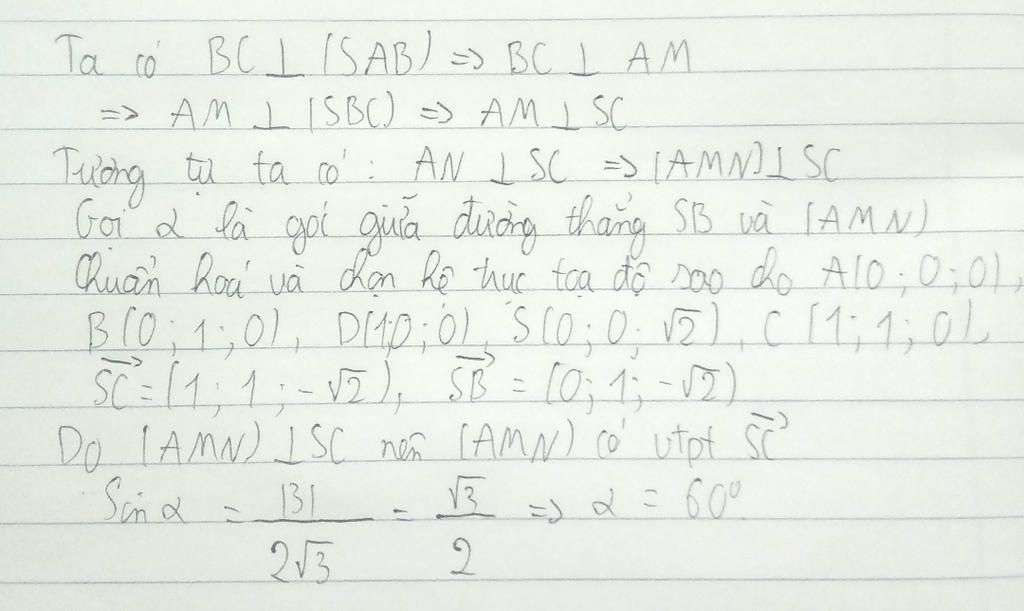 Ta có BC ⊥ (SAB) => BC ⊥ AM
=> AM ⊥ (SBC) => AM ⊥ SC
Tương tự ta có: AN ⊥ SC => (AMN) ⊥ SC
Gọi α là gói giữa đường thẳng SB và (AMN)
Chuẩn hoá và chọn hệ trục toạ độ sao cho A(0; 0; 0),
B(0; 1; 0), D(1;0; 0), S(0; 0; √2), C(1; 1; 0),
SC→ = (1; 1; -√2), SB→ = (0; 1; -√2)
Do (AMN) ⊥ SC nên (AMN) có vtpt SC→
Sin α = |3| / 2√3 = √3 / 2 => α = 60°